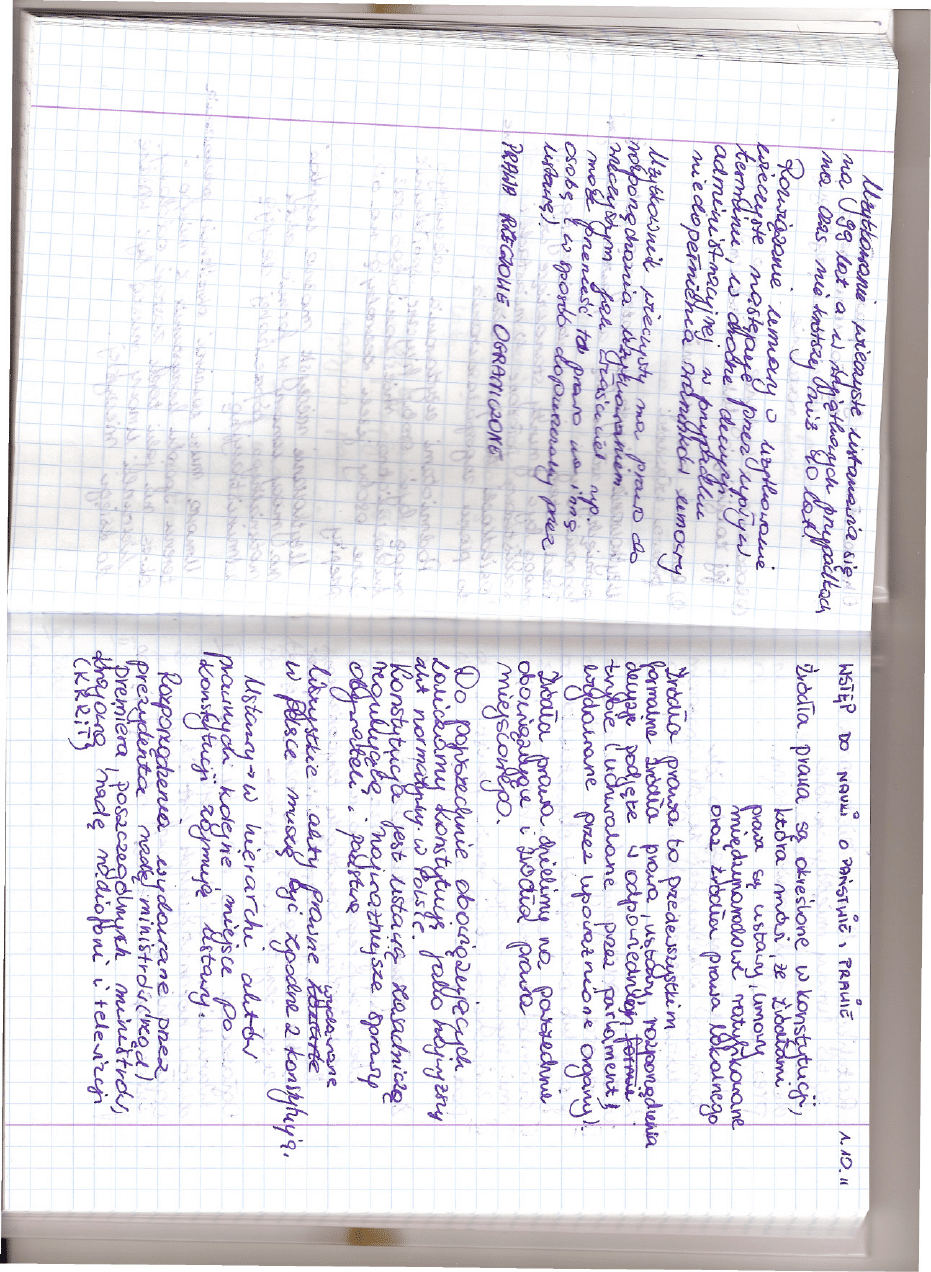 Użytkowanie wieczyste ustanawia się
na 99 lat a w wyjątkowych przypadkach
na czas nie krótszy niż 40 lat
Rozwiązanie umowy o użytkowanie
wieczyste następuje przez upływ
terminu, w drodze decyzji
administracyjnej w przypadku
niedopełnienia warunków umowy
Użytkownik wieczysty ma prawo do
rozporządzania użytkowaniem
wieczystym jego właściciel np.
może przenieść to prawo na inną
osobę (w sposób dopuszczony przez
ustawę)
PRAWA RZECZOWE OGRANICZONE
WSTĘP DO NAUKI O PAŃSTWIE I PRAWIE 1.10.11
Źródła prawa są określone w konstytucji,
która mówi, że źródłami
prawa są ustawy, umowy
międzynarodowe ratyfikowane
oraz źródła prawa lokalnego
Źródła prawa to przedewszystkim
formalne źródła prawa, ustawy, rozporządzenia
decyzje podjęte w odpowiednim formie
trybie (uchwalane przez parlament,
wydawane przez upoważnione organy).
Źródła prawa dzielimy na powszechnie
obowiązujące i źródła prawa
miejscowego.
Do powszechnie obowiązujących
zaliczamy konstytucję jako najwyższy
akt normatywny w Polsce.
Konstytucja jest ustawą zasadniczą
regulującą najważniejsze sprawy
obywateli i państwa
wydawane
Wszystkie akty prawne
w Polsce muszą być zgodne z konstytucją.
Ustawy → w hierarchi aktów
prawnych kolejne miejsce po
konstytucji zajmują ustawy.
Rozporządzenia wydawane przez
prezydenta radę ministrów (rząd)
premiera, poszczególnych ministrów,
krajową radę radiofoni i telewizji
(KRRiT)